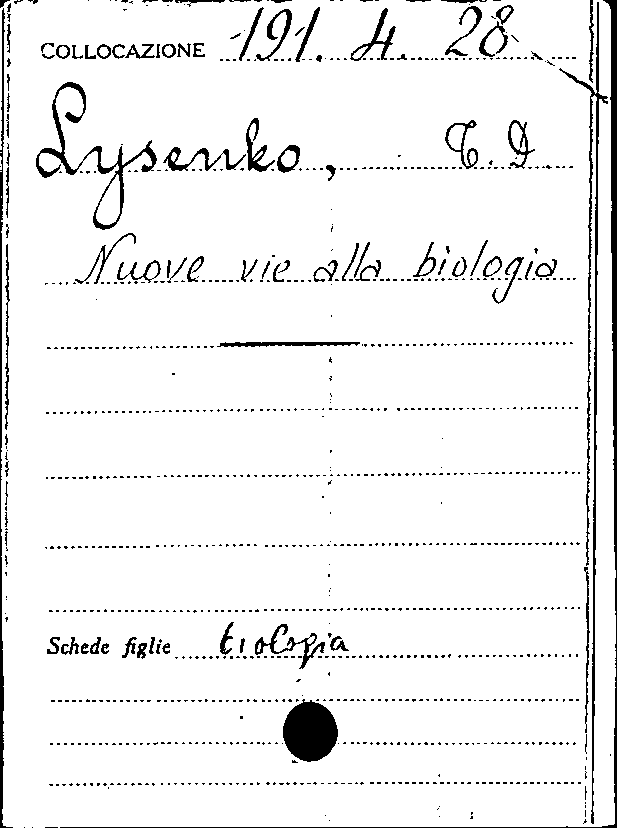 COLLOCAZIONE 191. 4. 28
Lysenko, T. D.
Nuove vie alla biologia
Schede figlie biologia